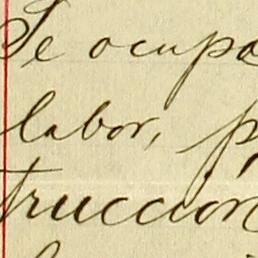 Se ocupa
labor, p
truccion